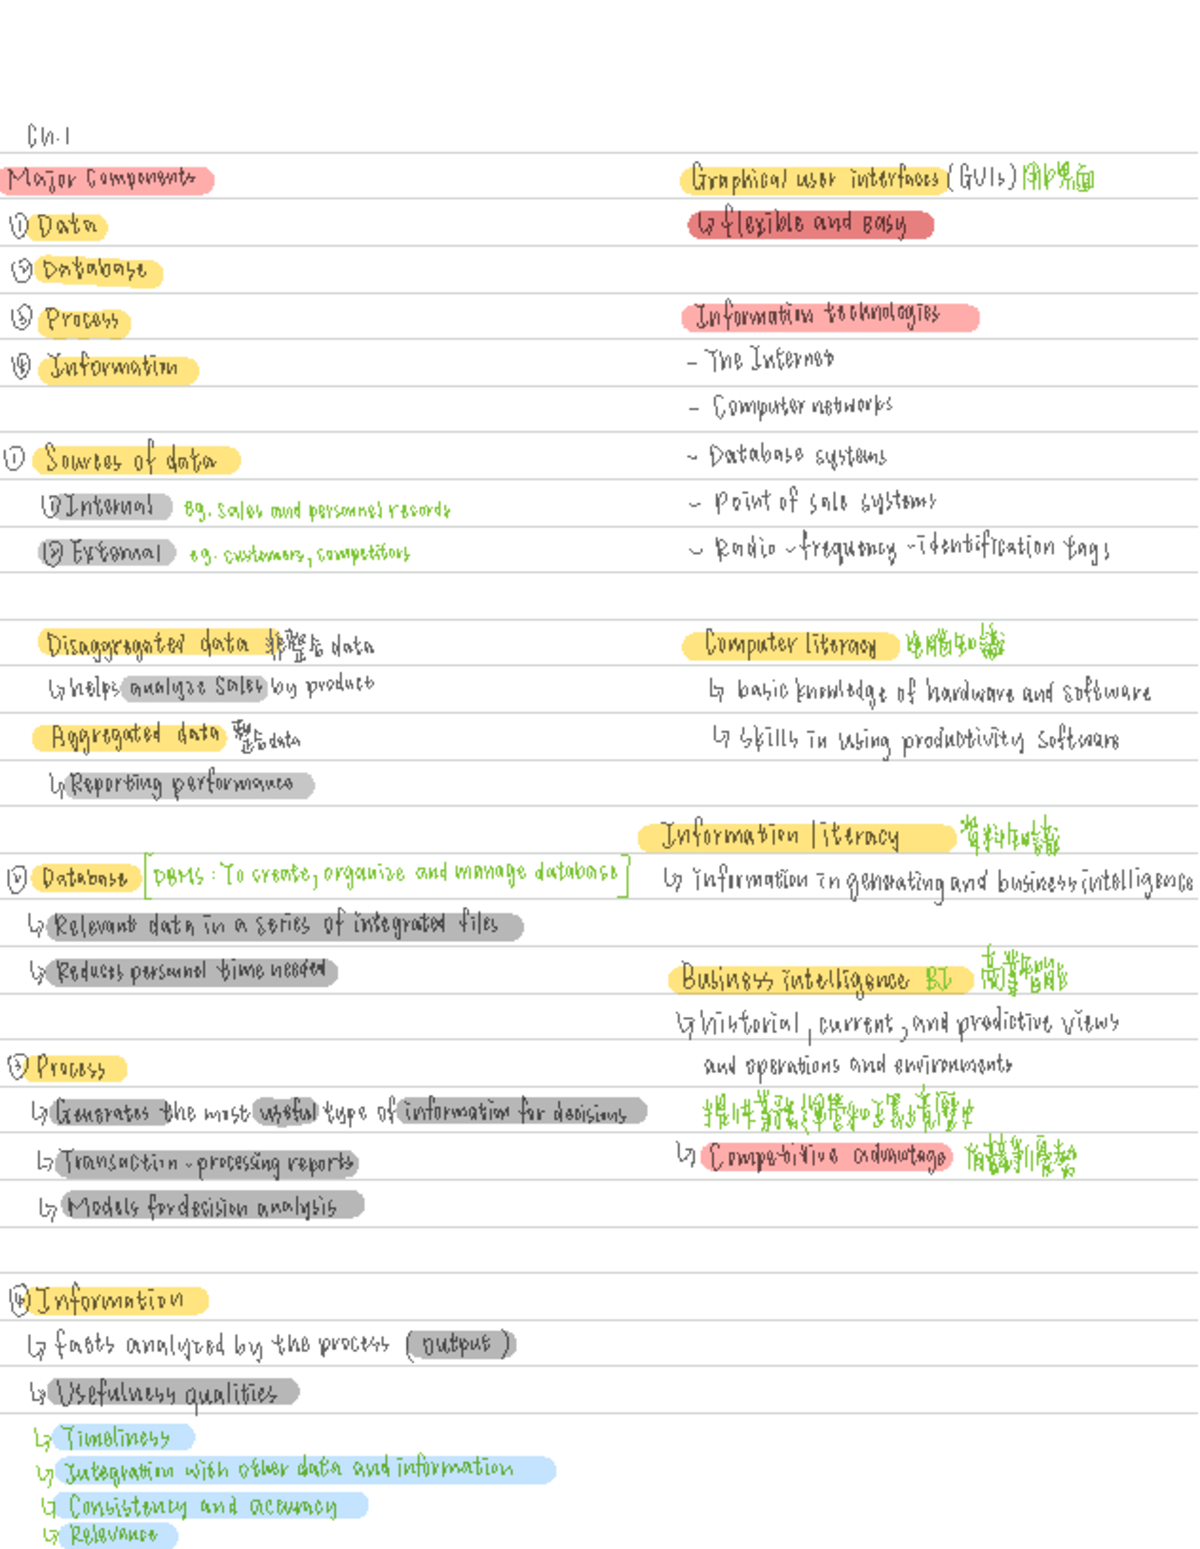 Ch.1
Major Components
① Data
② Database
③ Process
④ Information
① Sources of data
① Internal eg. sales and personnel records
② External eg. customers, competitors
Disaggregated data 非整合 data
↳ helps analyze sales by product
Aggregated data 整合 data
↳ Reporting performance
② Database [DBMS : To create, organize and manage database]
↳ Relevant data in a series of integrated files
↳ Reduces personnel time needed
③ Process
↳ Generates the most useful type of information for decisions
↳ Transaction - processing reports
↳ Models for decision analysis
④ Information
↳ facts analyzed by the process (output)
↳ Usefulness qualities
↳ Timeliness
↳ Integration with other data and information
↳ Consistency and accuracy
↳ Relevance
Graphical user interfaces (GUIs) 用戶界面
↳ flexible and easy
Information technologies
- The Internet
- Computer networks
- Database systems
- Point of sale systems
- Radio -frequency -identification tags
Computer literacy 電腦知識
↳ basic knowledge of hardware and software
↳ skills in using productivity software
Information literacy 資料知識
↳ information in generating and business intelligence
Business intelligence BI 商業智能
↳ historial, current, and predictive views
and operations and environments
↳ Competitive advantage 有競爭優勢